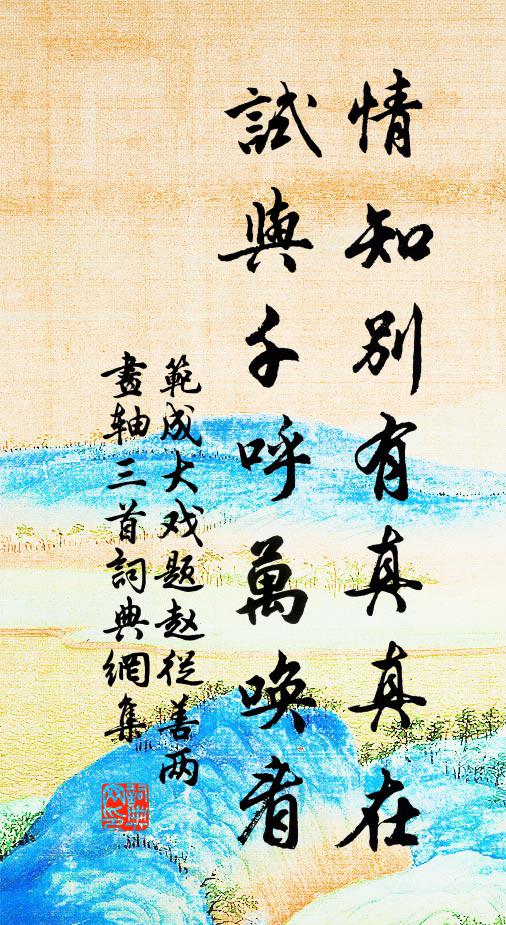 情知別有真真在
試與千呼萬喚看
範成大戏題赵從善两
畫轴三首詞典網集